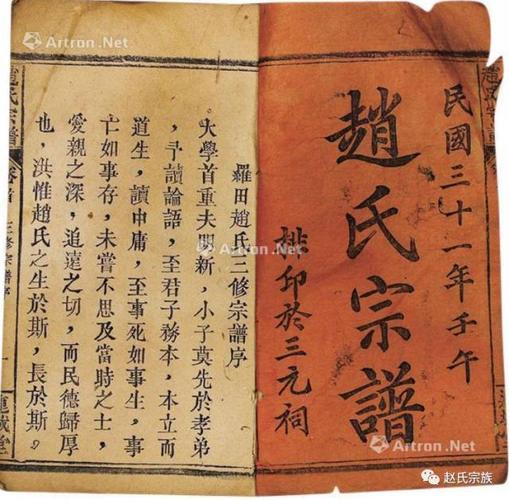 Artron.Net
Artron.Net
民國三十一年壬午
趙氏宗譜
排印於三元祠
羅田趙氏三修宗譜序
大學首重夫明新，小子莫先於孝弟
，予讀論語，至君子務本，本立而
道生，讀中庸，至事死如事生，事
亡如事存，未嘗不思及當時之士，
愛親之深，追遠之切，而民德歸厚
也，洪惟趙氏之生於斯，長於斯。
趙氏宗譜
卷首
三修宗譜序
一
Artron.Net
赵氏宗族